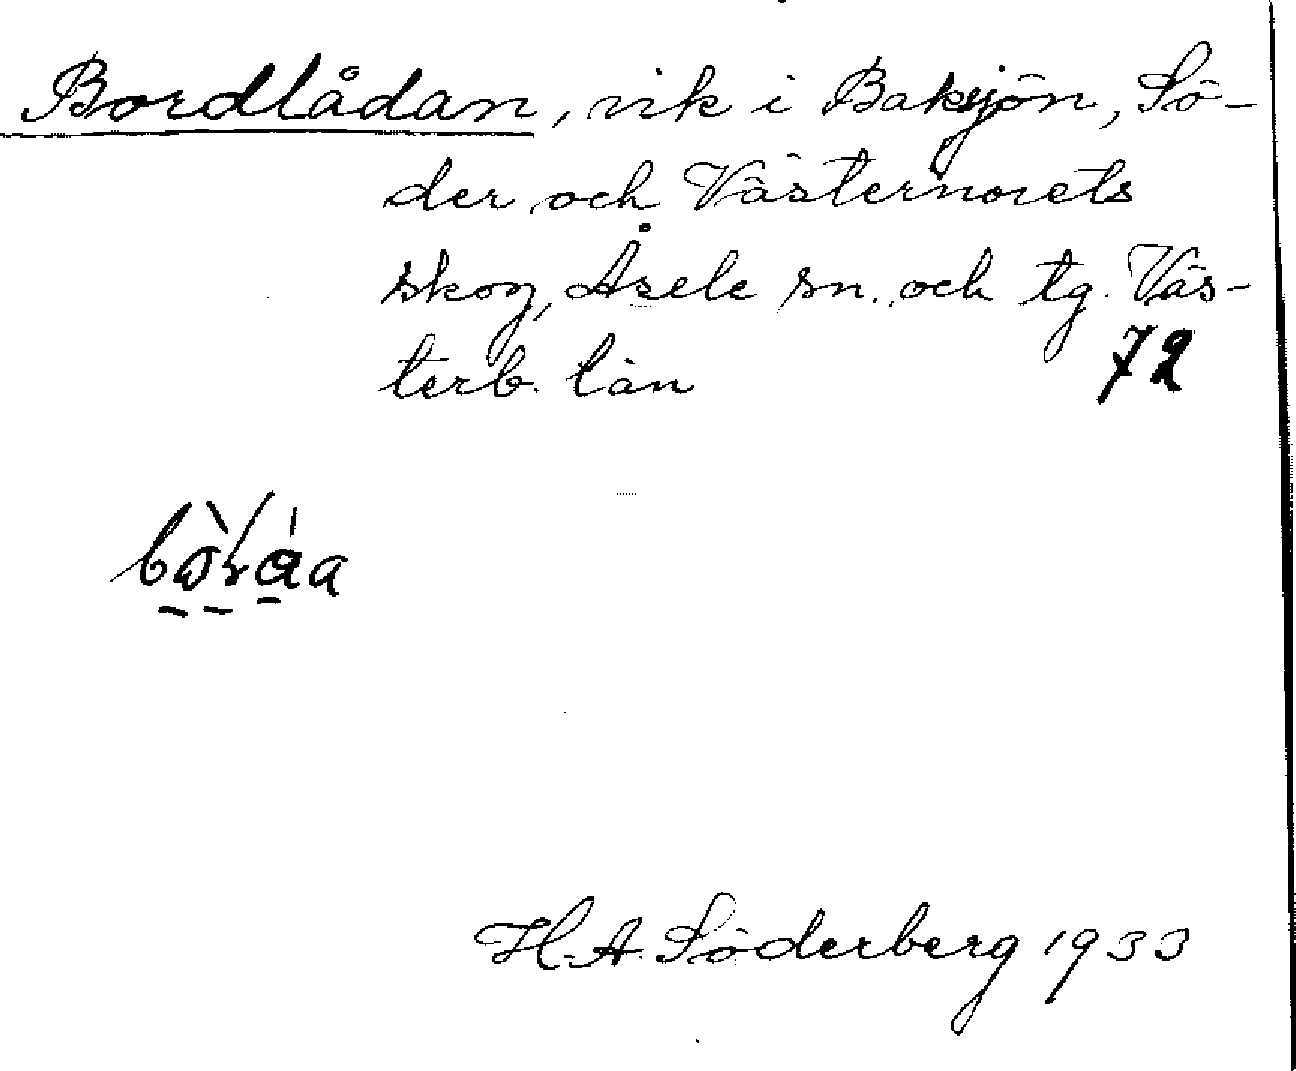 Bordlådan, vik i Baksjön, Sö-
der och Västernorets
skog, Åsele sn. och tg. Väs-
terb. län 72
H. A. Söderberg 1933